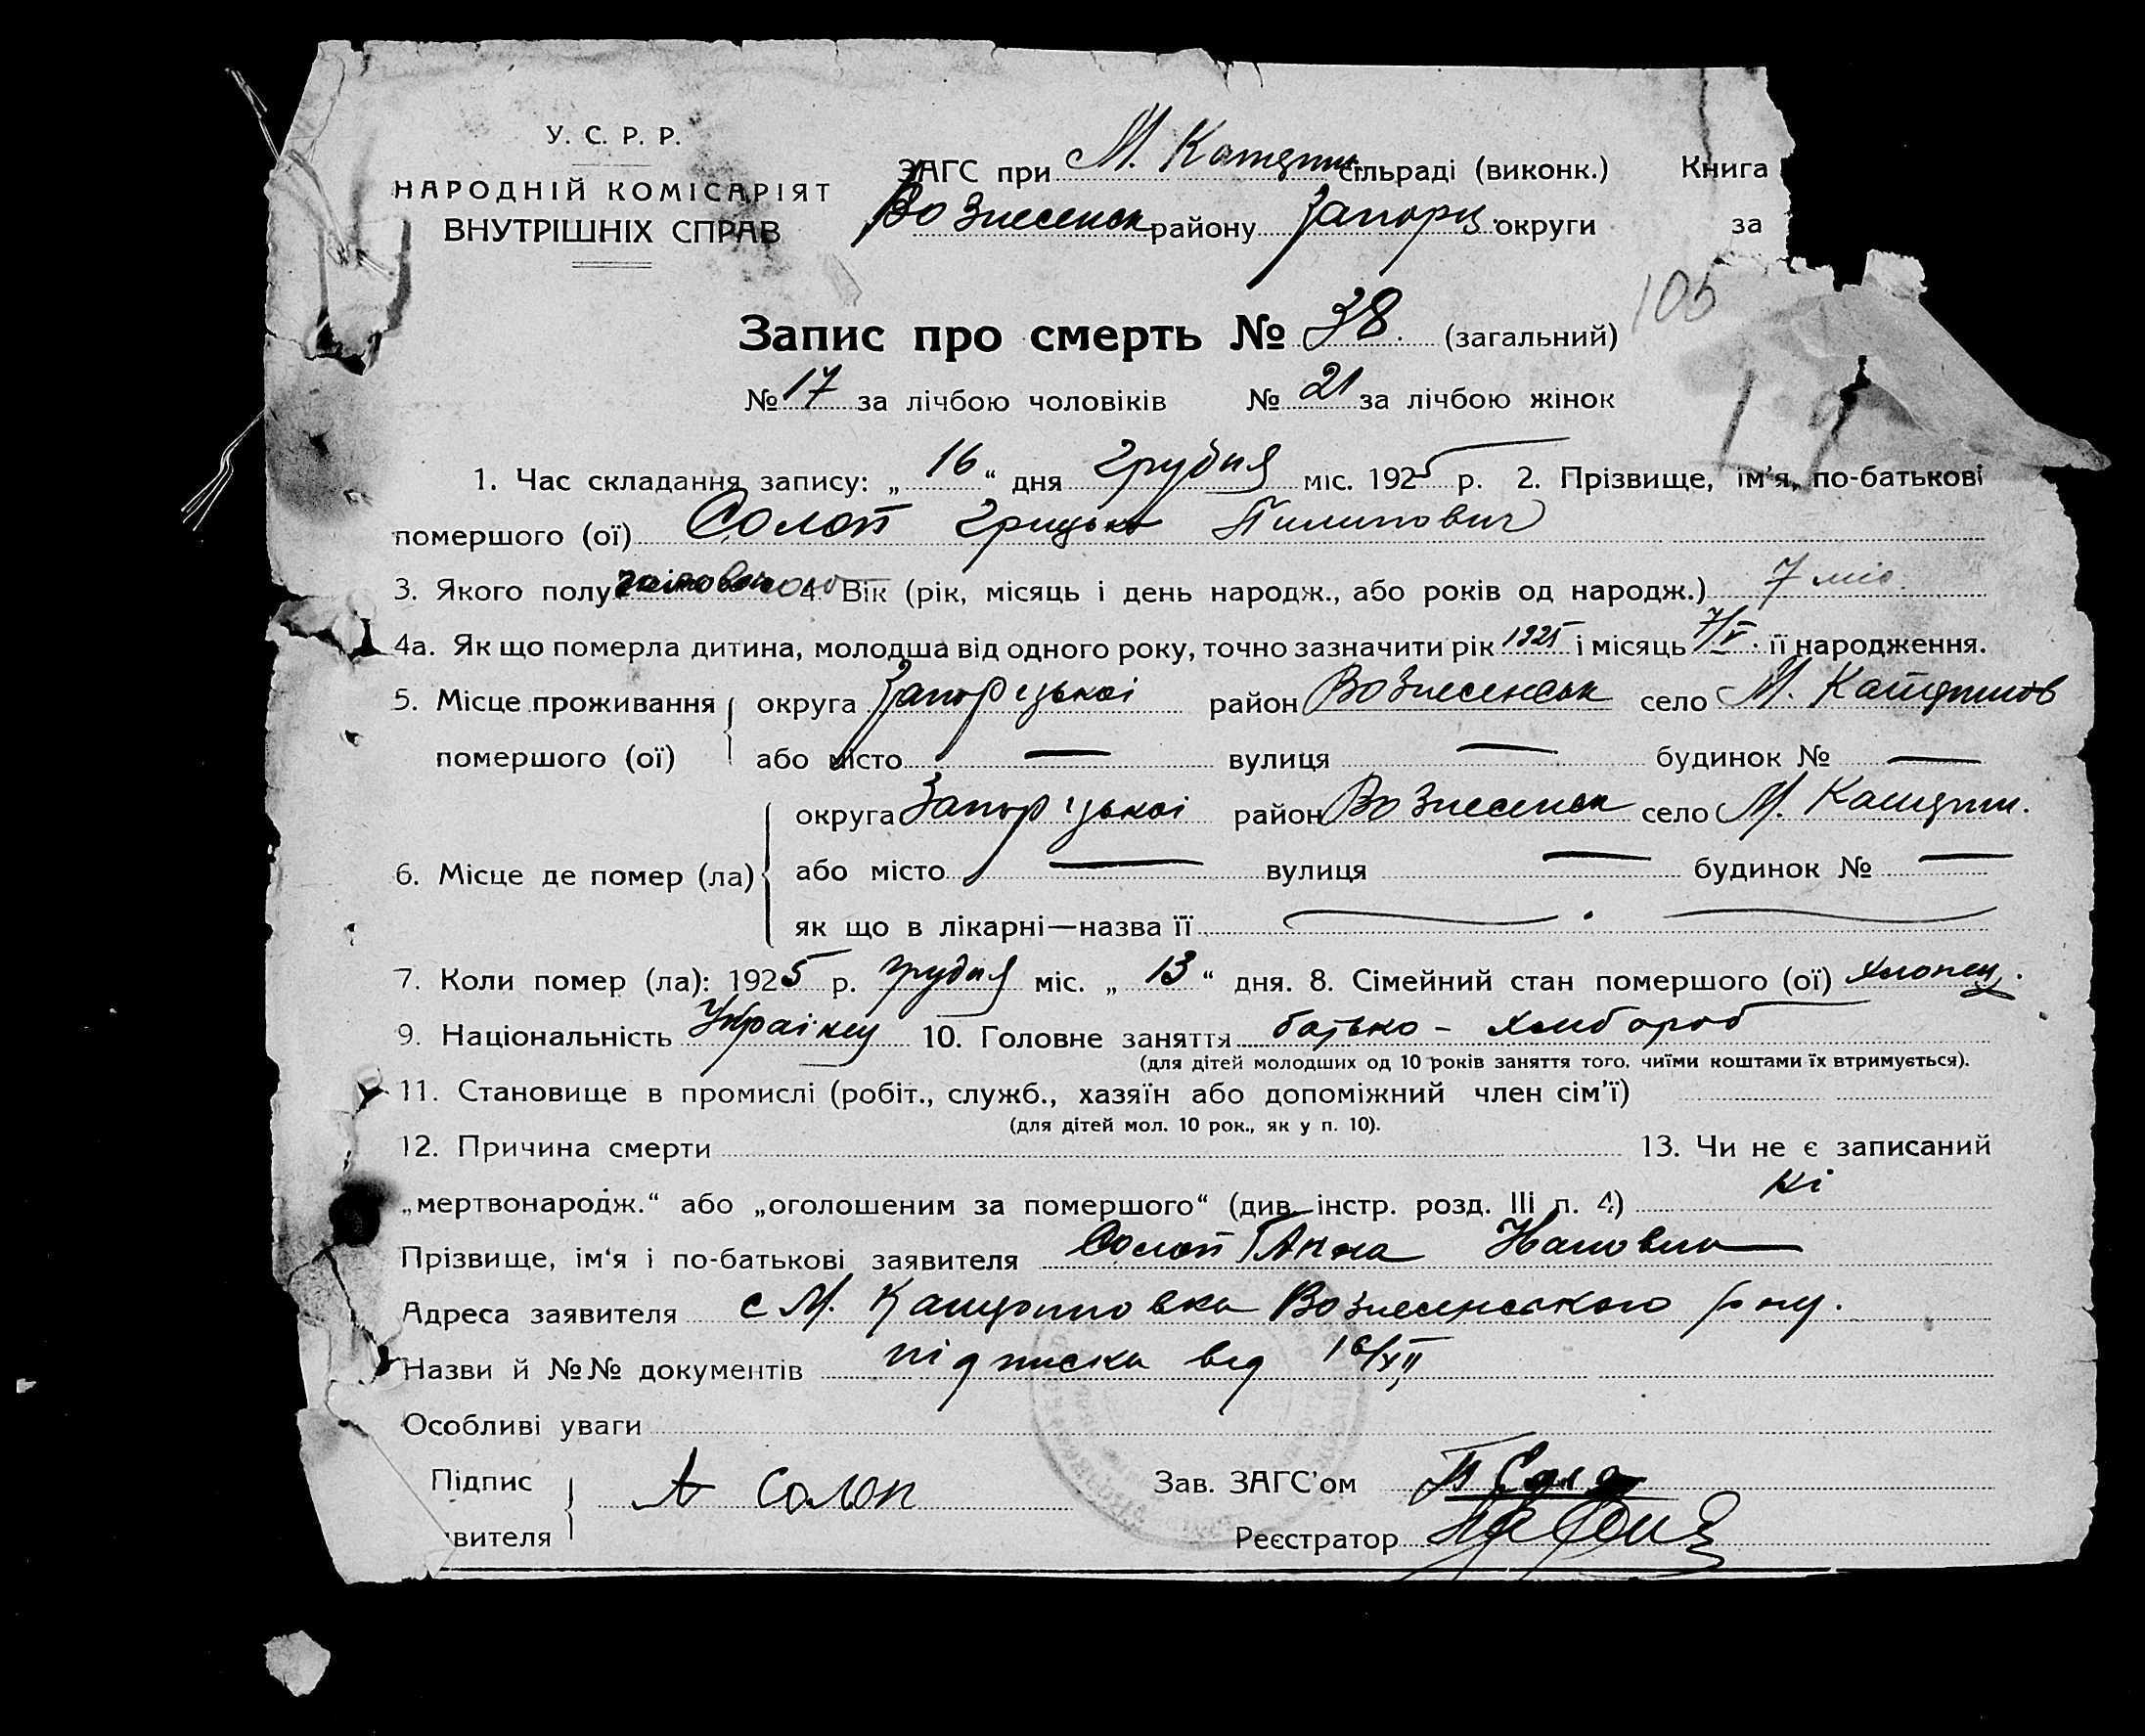 У. С. Р. Р.
НАРОДНІЙ КОМІСАРІЯТ
ВНУТРІШНІХ СПРАВ
ЗАГС при М. Катещин сільраді (виконк.) Книга
Вознесенськ району Запоріз. округи за
105
Запис про смерть № 38. (загальний)
№ 17 за лічбою чоловіків № 21 за лічбою жінок
1. Час складання запису: „ 16 “ дня грудня міс. 1925 р. 2. Прізвище, ім'я, по-батькові
помершого (ої) Солоп Грицько Пилипович
3. Якого полу 4. Вік (рік, місяць і день народж., або років од народж.) 7 міс.
4а. Як що померла дитина, молодша від одного року, точно зазначити рік 1925 і місяць 7/V. її народження.
5. Місце проживання округа Запорізькоі район Вознесенськ село М.
помершого (ої) або місто — вулиця — будинок № —
округа Запорізькоі район Вознесенськ село М.
6. Місце де помер (ла) або місто — вулиця — будинок № —
як що в лікарні—назва її
7. Коли помер (ла): 1925 р. грудня міс. „ 13 “ дня. 8. Сімейний стан помершого (ої) хлопец.
9. Національність Украінец 10. Головне заняття батько - хлібороб
(для дітей молодших од 10 років заняття того, чиїми коштами їх втримується).
11. Становище в промислі (робіт., служб., хазяїн або допоміжний член сім'ї)
(для дітей мол. 10 рок., як у п. 10).
12. Причина смерти 13. Чи не є записаний
„мертвонародж.“ або „оголошеним за помершого“ (див. інстр. розд. III п. 4) ні
Прізвище, ім'я і по-батькові заявителя Солоп Ганна
Адреса заявителя с М. Вознесенського р-ну.
Назви й №№ документів підписка від 16/XII
Особливі уваги
Підпис А Солоп Зав. ЗАГС'ом
вителя Реєстратор